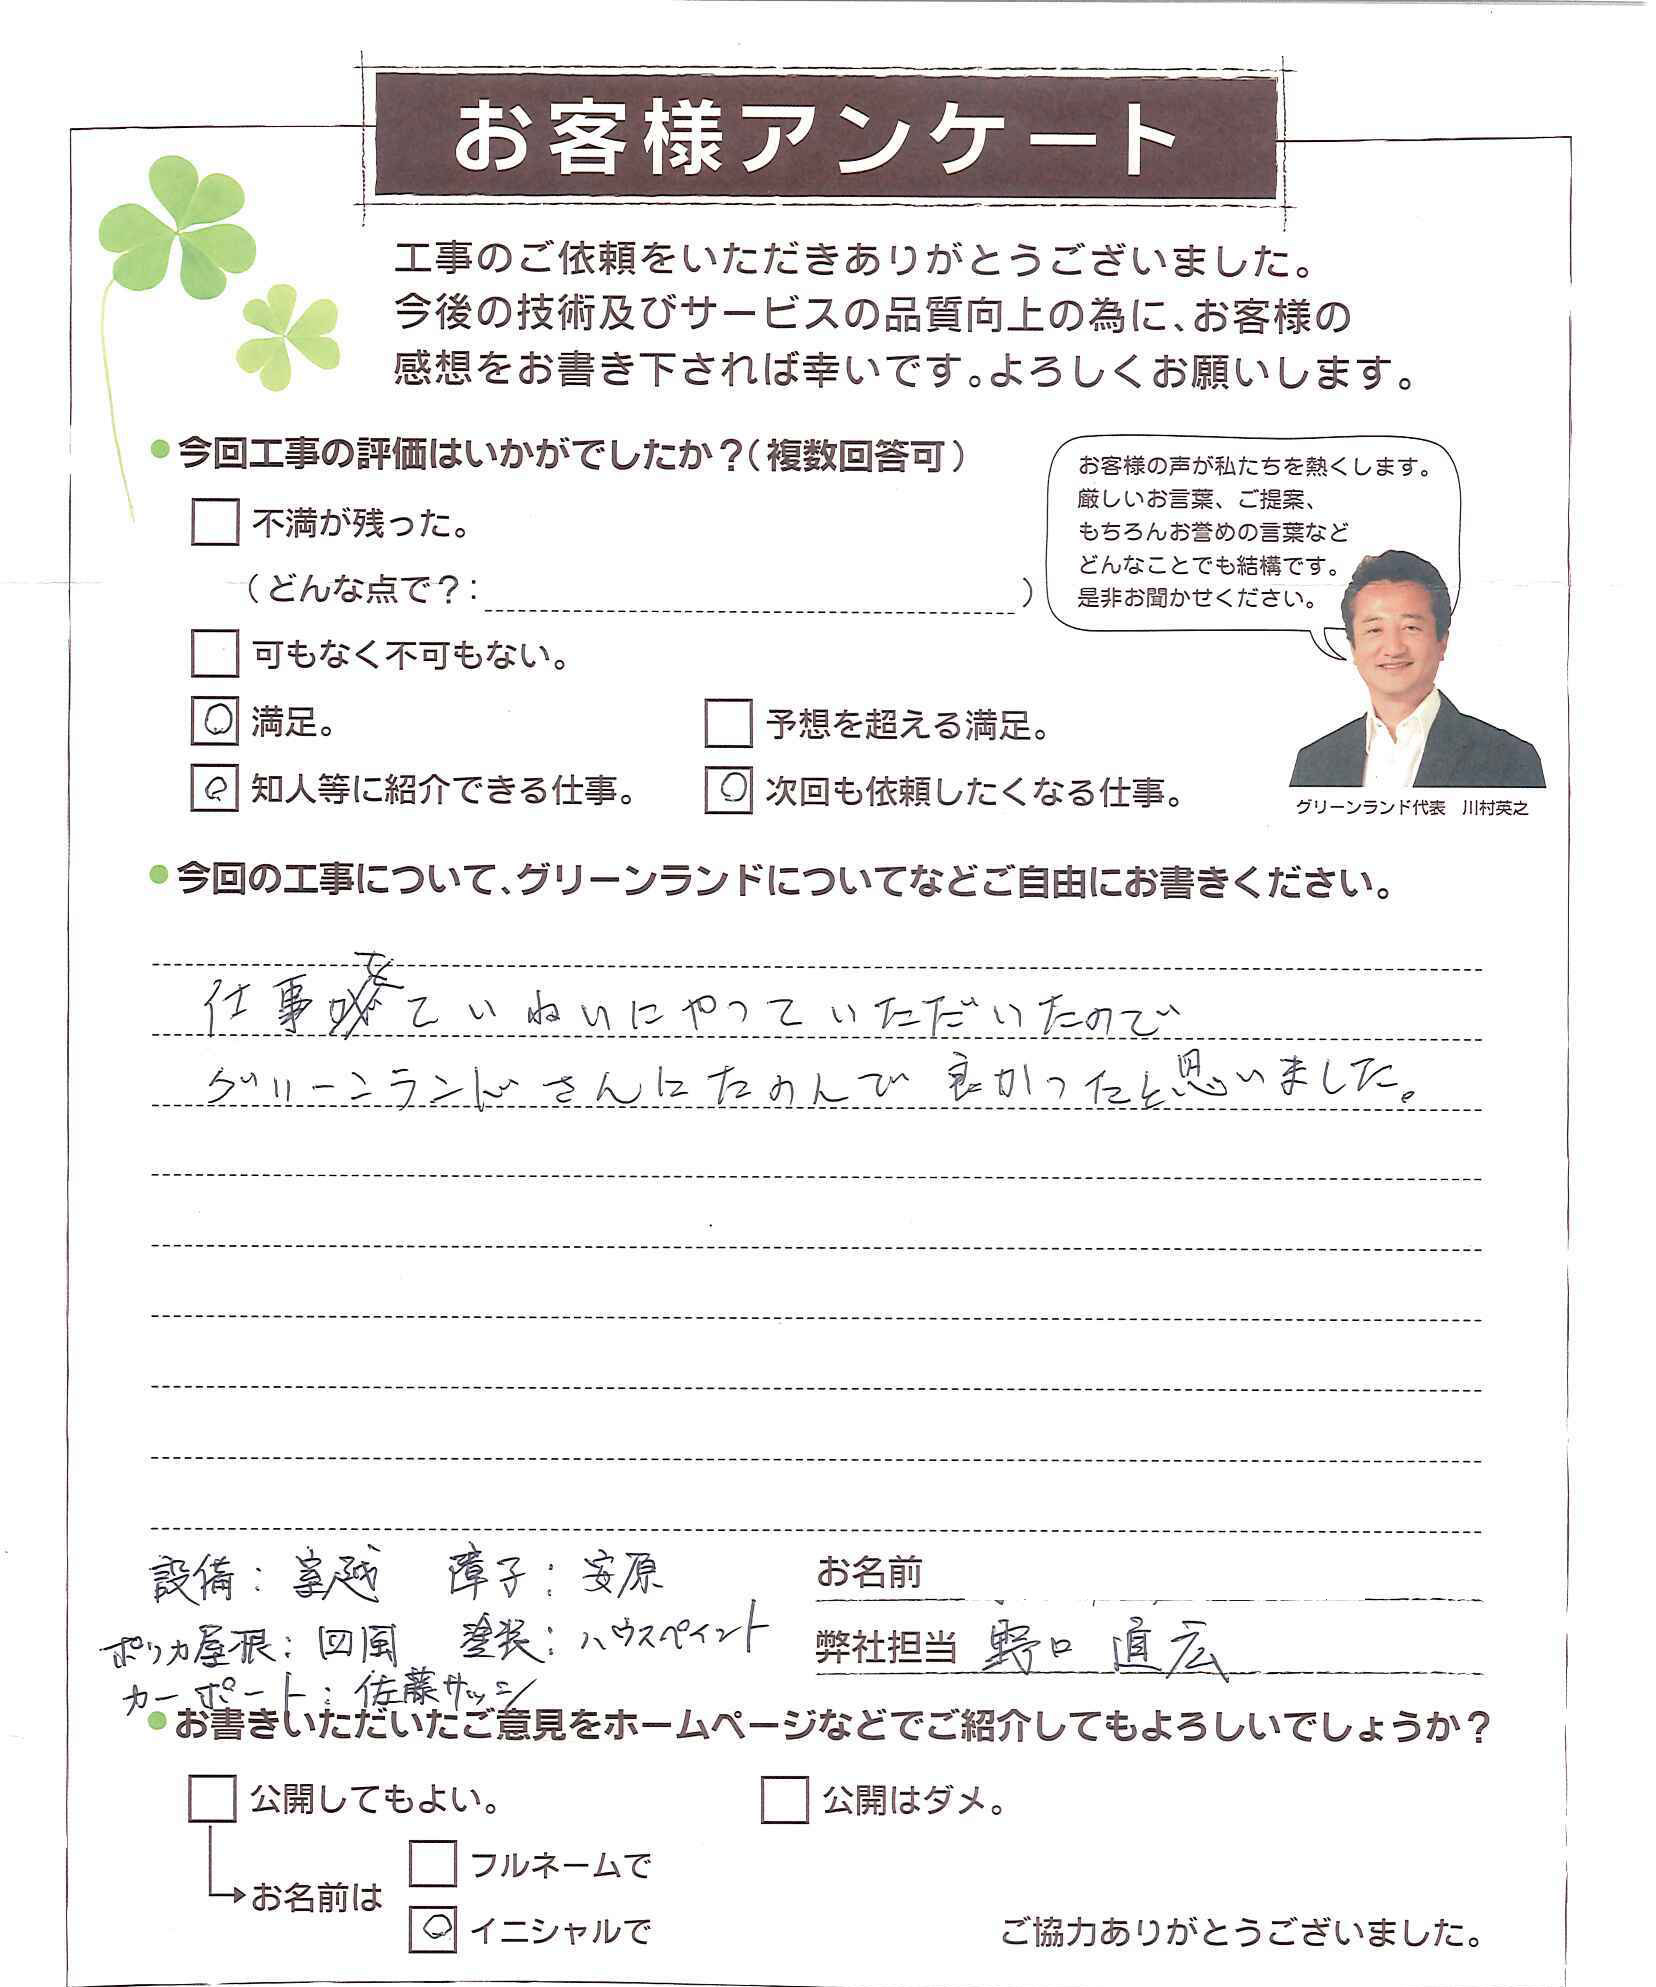 お客様アンケート
工事のご依頼をいただきありがとうございました。
今後の技術及びサービスの品質向上の為に、お客様の
感想をお書き下されば幸いです。よろしくお願いします。
●今回工事の評価はいかがでしたか？（複数回答可）
お客様の声が私たちを熱くします。
厳しいお言葉、ご提案、
もちろんお誉めの言葉など
どんなことでも結構です。
是非お聞かせください。
不満が残った。
（どんな点で？：　）
可もなく不可もない。
満足。
予想を超える満足。
知人等に紹介できる仕事。
次回も依頼したくなる仕事。
グリーンランド代表　川村英之
●今回の工事について、グリーンランドについてなどご自由にお書きください。
仕事をていねいにやっていただいたので
グリーンランドさんにたのんで良かったと思いました。
設備：室越　障子：安原
お名前
ポリカ屋根：四風　塗装：ハウスペイント
弊社担当　野口　直広
カーポート：佐藤サッシ
●お書きいただいたご意見をホームページなどでご紹介してもよろしいでしょうか？
公開してもよい。
公開はダメ。
フルネームで
お名前は
イニシャルで
ご協力ありがとうございました。